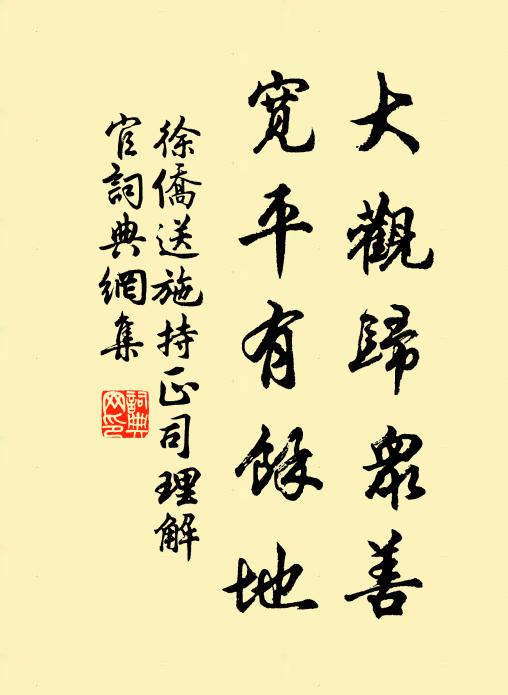 大觀歸衆善
寬平有餘地
徐僑送施持正司理解
官詞典網集
詞典网印